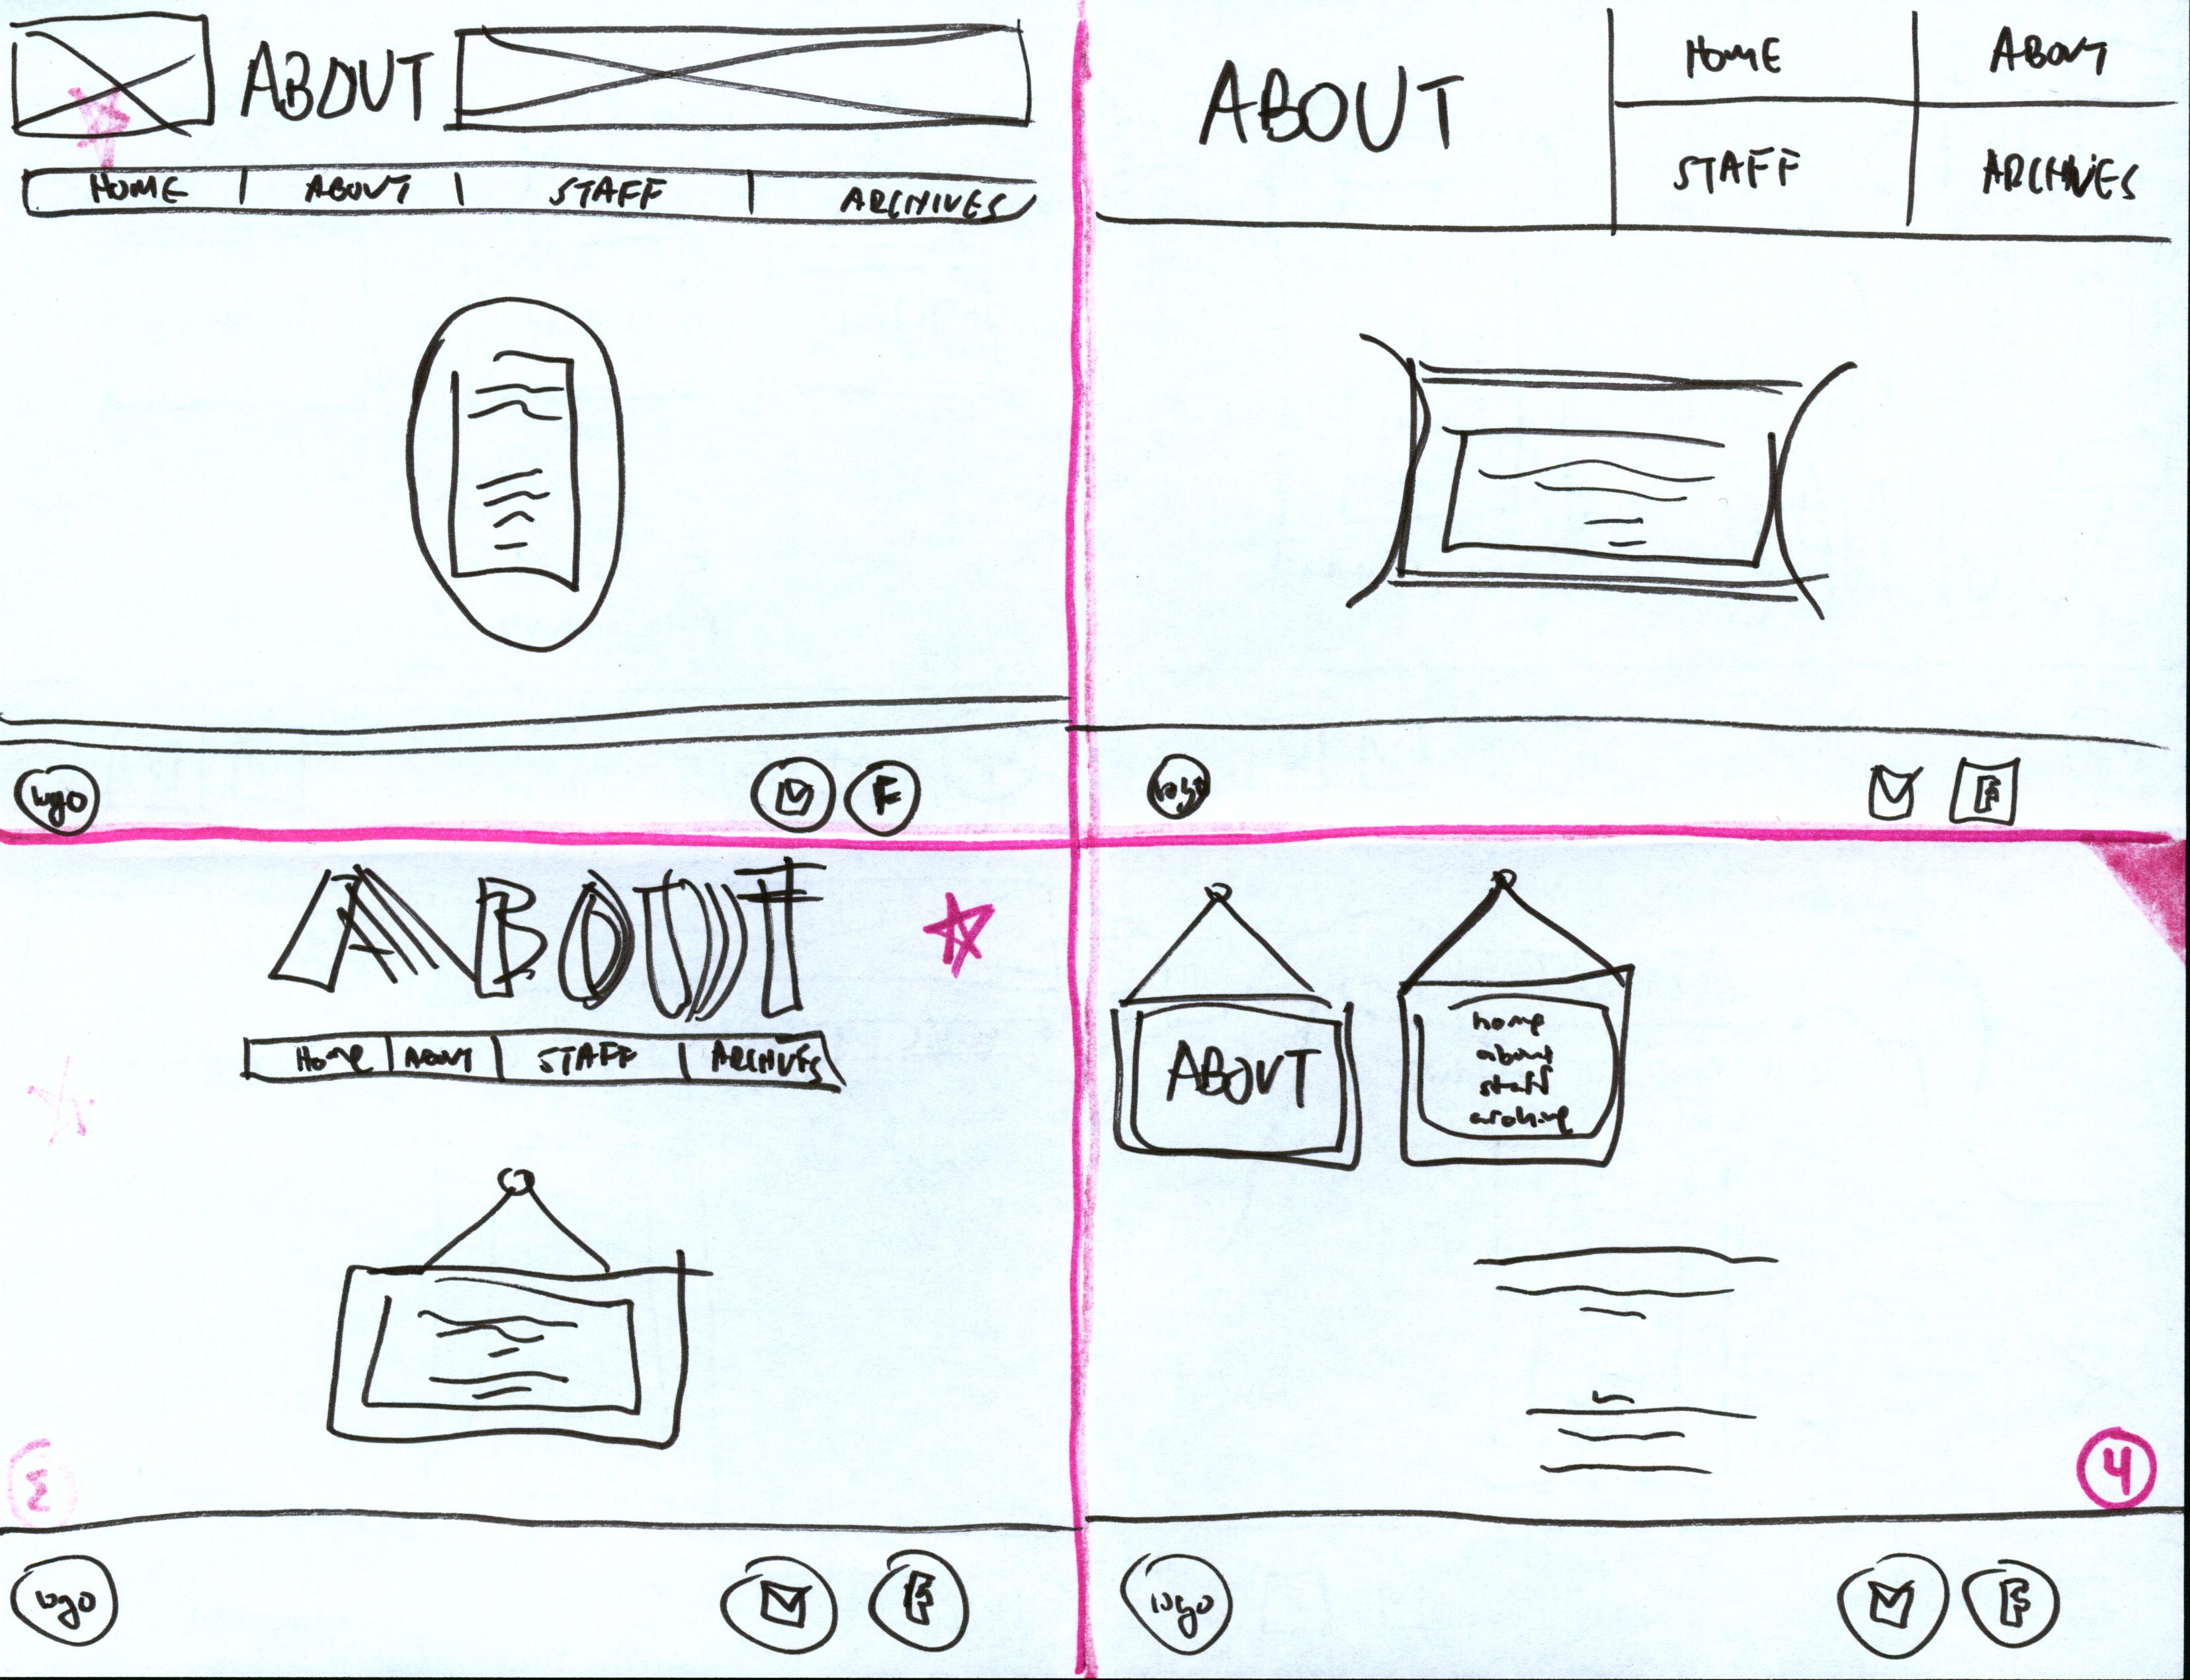 ABOUT
HOME ABOUT STAFF ARCHIVES
logo F
ABOUT
HOME ABOUT
STAFF ARCHIVES
logo F
ABOUT
Home ABOUT STAFF ARCHIVES
logo F
ABOUT
home
about
staff
archive
4
logo F